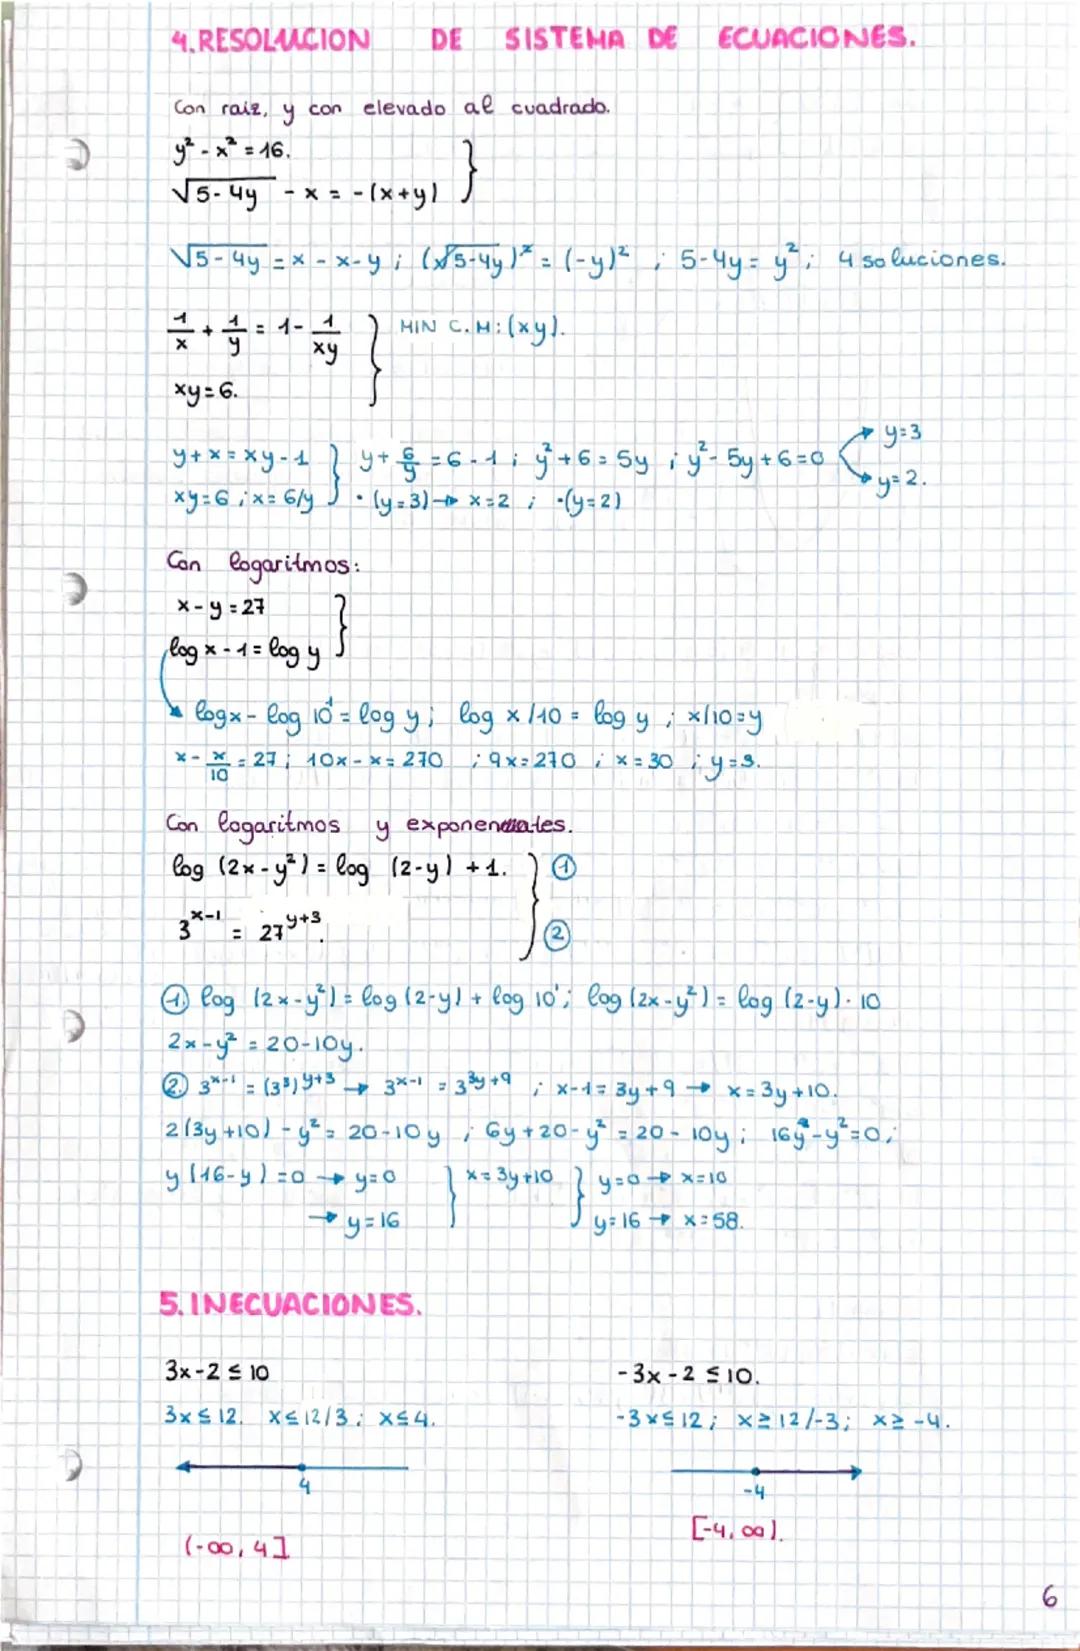 4. RESOLUCION DE SISTEMA DE ECUACIONES.
Con raiz, y con elevado al cuadrado.
y² - x² = 16.
√5-4y - x = -(x+y)
√5-4y = x - x - y ; (√5-4y)² = (-y)² ; 5-4y = y² ; 4 soluciones.
1/x + 1/y = 1 - 1/xy } MIN C.M: (xy).
xy = 6.
y + x = xy - 1 } y + 6/y = 6 - 1 ; y² + 6 = 5y ; y² - 5y + 6 = 0 → y = 3 → y = 2.
xy = 6 ; x = 6/y · (y = 3) → x = 2 ; ·(y = 2)
Con logaritmos:
x - y = 27
log x - 1 = log y
log x - log 10¹ = log y ; log x/10 = log y ; x/10 = y
x - x/10 = 27 ; 10x - x = 270 ; 9x = 270 ; x = 30 ; y = 3.
Con logaritmos y exponenciales.
log (2x - y²) = log (2-y) + 1. } ①
3^x-1 = 27^y+3. ②
① log (2x - y²) = log (2-y) + log 10¹ ; log (2x - y²) = log (2-y) · 10
2x - y² = 20 - 10y.
② 3^x-1 = (3³)^y+3 → 3^x-1 = 3^3y+9 ; x - 1 = 3y + 9 → x = 3y + 10.
2(3y + 10) - y² = 20 - 10y ; 6y + 20 - y² = 20 - 10y ; 16y - y² = 0 ;
y (16 - y) = 0 → y = 0 } x = 3y + 10 } y = 0 → x = 10
→ y = 16 y = 16 → x = 58.
5. INECUACIONES.
3x - 2 ≤ 10 -3x - 2 ≤ 10.
3x ≤ 12. x ≤ 12/3 ; x ≤ 4. -3x ≤ 12 ; x ≥ 12/-3 ; x ≥ -4.
4 -4
(-∞, 4] [-4, ∞).
6